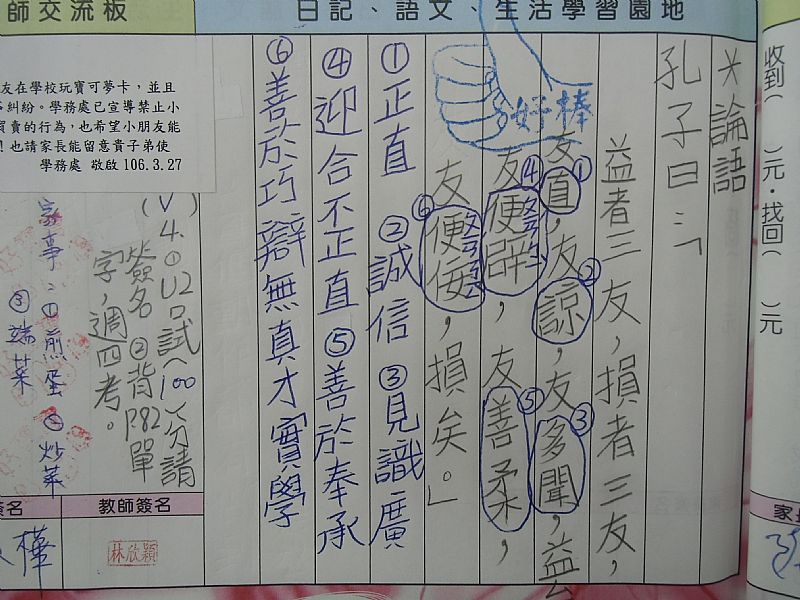 師交流板
日記、語文、生活學習園地
收到(　　)元．找回(　　)元
＊論語
孔子曰：「
益者三友，損者三友，
友直①，友諒②，友多聞③，益
友便辟④，友善柔⑤，
友便佞⑥，損矣。」
好棒
①正直 ②誠信 ③見識廣
④迎合不正直 ⑤善於奉承
⑥善於巧辯無真才實學
友在學校玩寶可夢卡，並且
糾紛。學務處已宣導禁止小
買賣的行為，也希望小朋友能
！也請家長能留意貴子弟使
學務處 敬啟 106.3.27
(V)
4.①U2口試(100)分請
簽名 ②背P.82單
字，週四考。
家事：①煎蛋 ②炒菜
③端菜
教師簽名
林欣穎
簽名
樺
家長